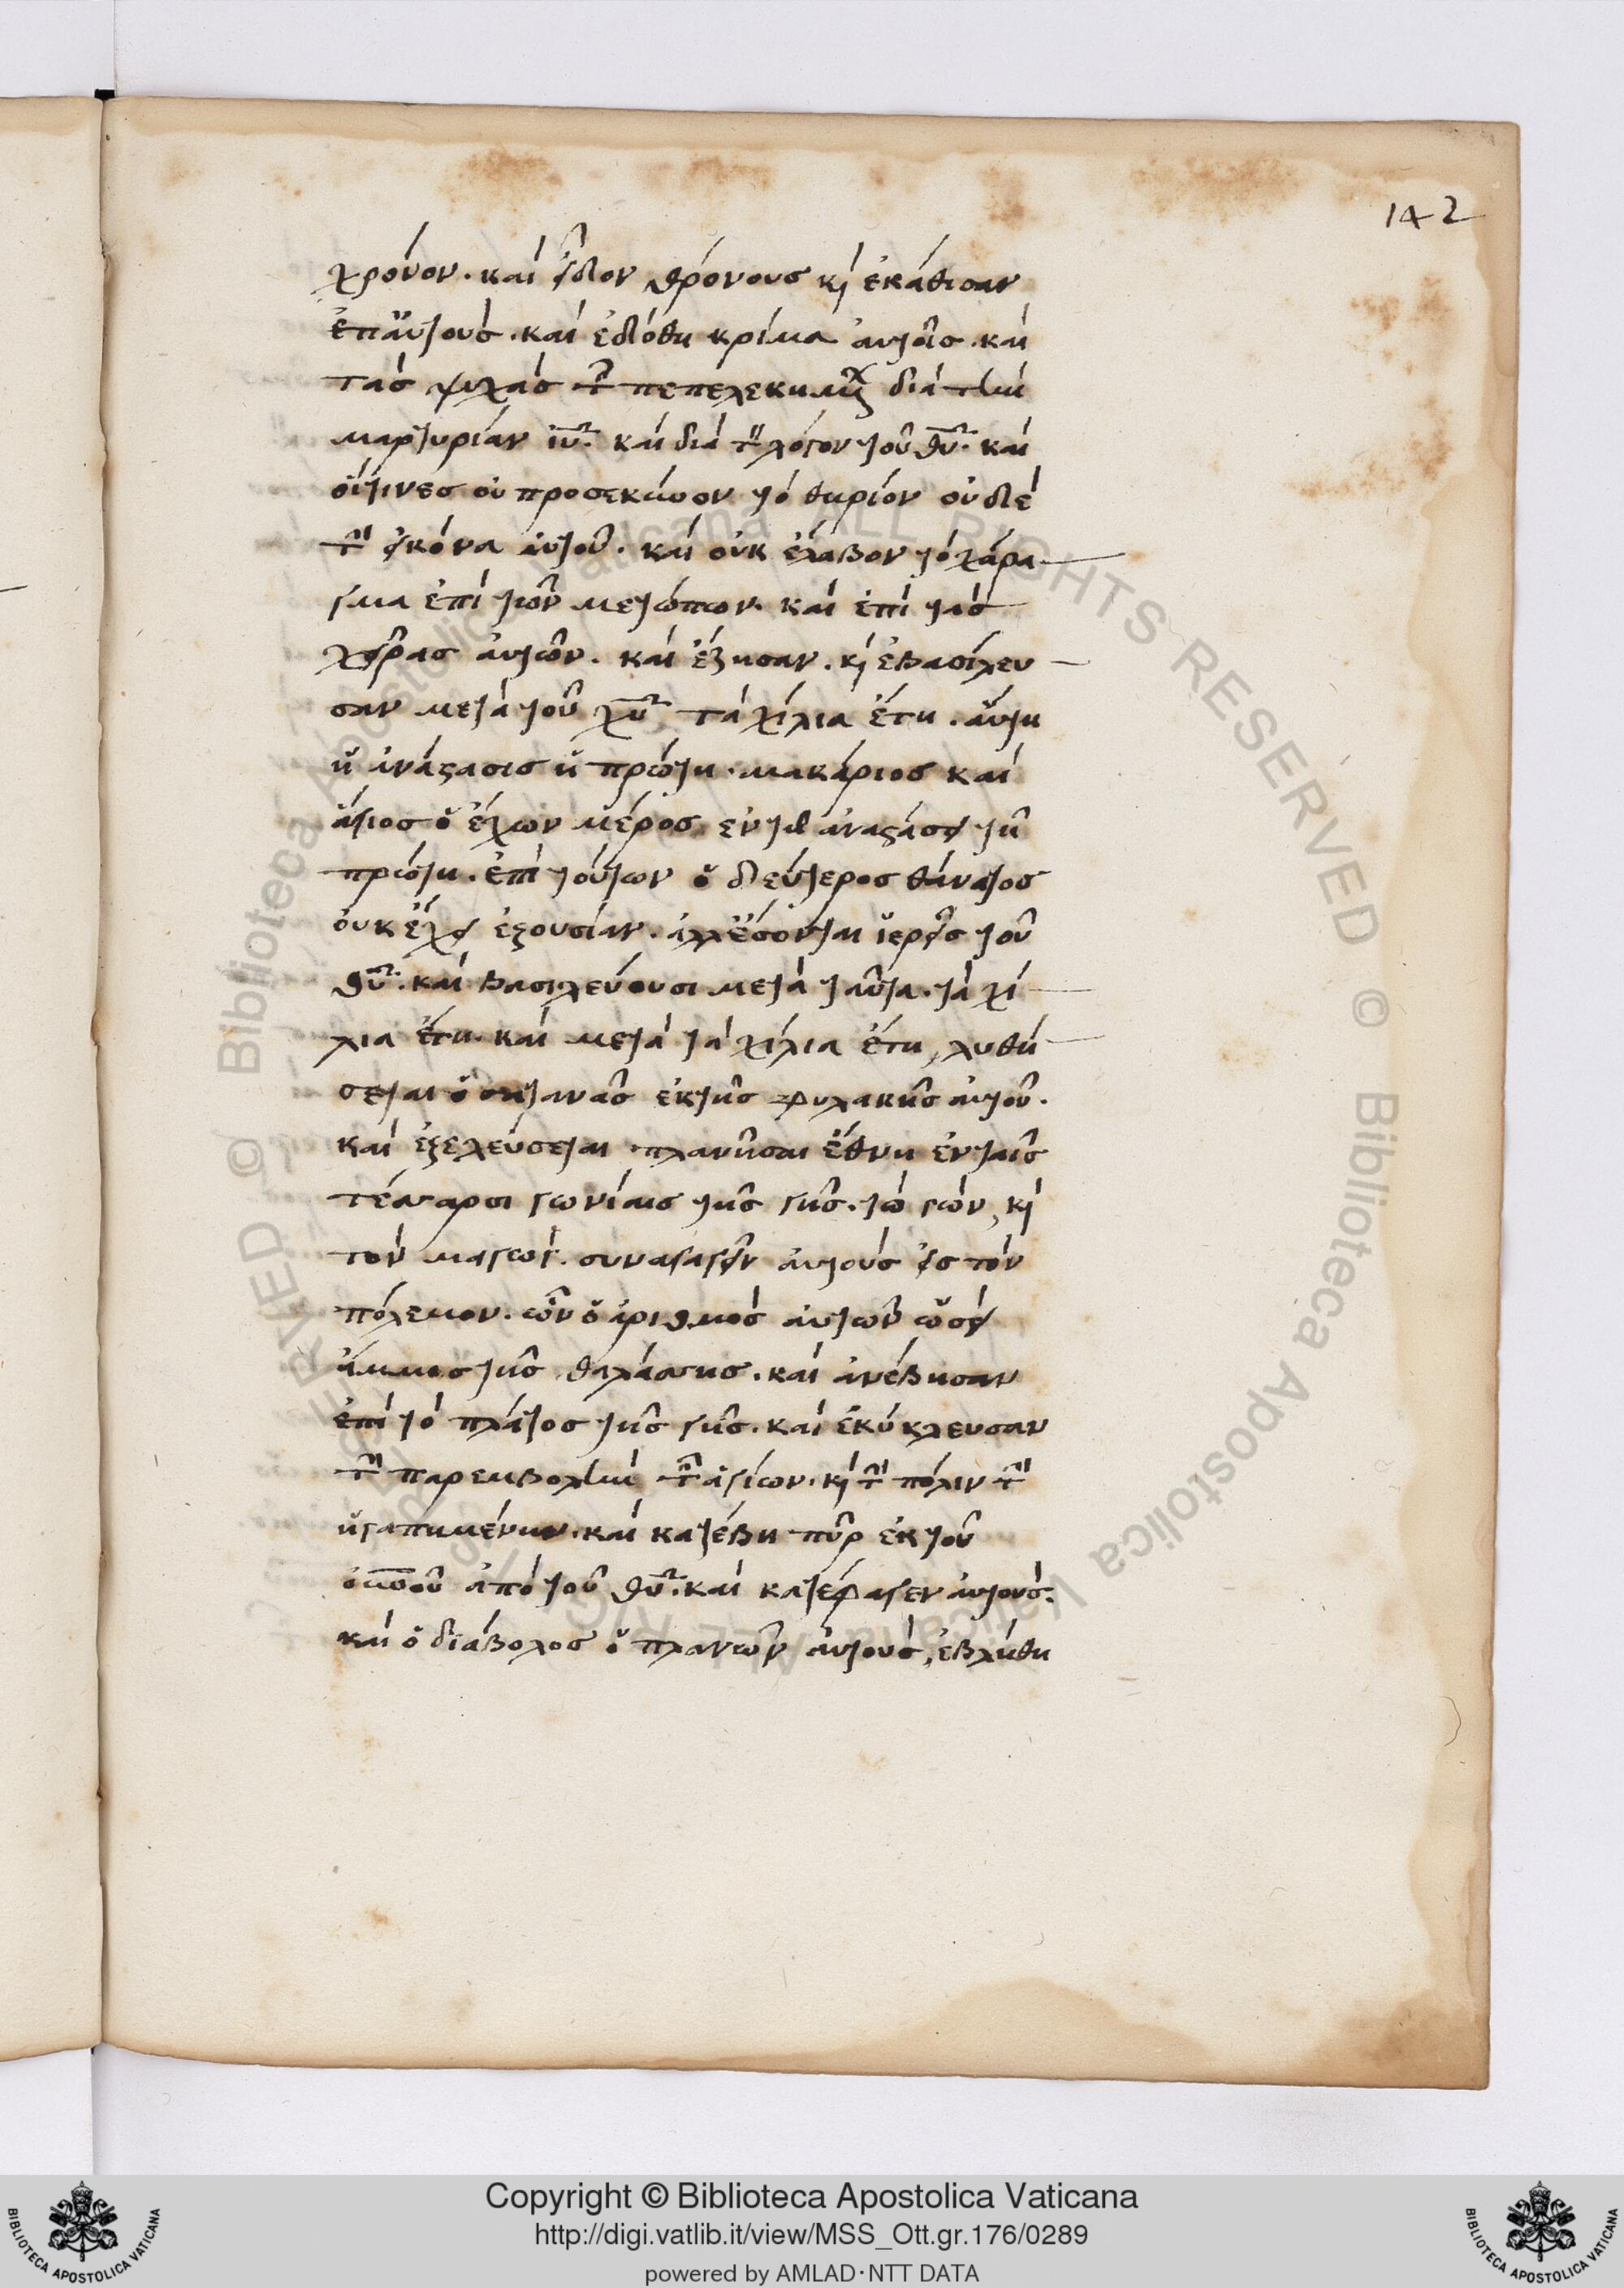 142
χρόνον. καὶ εἶδον θρόνους κ̀ ἐκάθισαν
ἐπ' αὐτοὺς. καὶ ἐδόθη κρίμα αὐτοῖς. καὶ
τὰς ψυχὰς τ̃ πεπελεκημ διὰ τὴν
μαρτυρίαν ἰυ̅. καὶ διὰ τ̀ λόγον τοῦ θυ̅. καὶ
οἵτινες οὐ προσεκύνσον τὸ θηρίον οὐδὲ
τ̀ εἰκόνα αὐτοῦ. καὶ οὐκ ἔλαβον τὸ χάρα
γμα ἐπὶ τῶν μετώπων. καὶ ἐπὶ τὰς
χεῖρας αὐτῶν. καὶ ἔζησαν. κ̀ ἐβασίλευ
σαν μετὰ τοῦ χυ̅ τὰ χίλια ἔτη. αὕτη
ἡ ἀνάστασις ἡ πρώτη. μακάριος καὶ
ἅγιος ὁ ἔχων μέρος ἐν τῆ ἀναστάσει τῆ
πρώτη. ἐπὶ τούτων ὁ δεύτερος θάνατος
οὐκ ἔχει ἐξουσίαν. ἀλλ' ἔσονται ἱερεῖς τοῦ
θυ̅. καὶ βασιλεύουσι μετὰ ταῦτα. τὰ χί
λια ἔτη. καὶ μετὰ τὰ χίλια ἔτη, λυθή
σεται ὁ σατανᾶς ἐκ τῆς φυλακῆς αὐτοῦ.
καὶ ἐξελεύσεται πλανῆσαι ἔθνη ἐν ταῖς
τέσσαρσι γωνίαις τῆς γῆς. τὼ γὼν, κ̀
τὸν μαγώγ. συναγαγεῖν αὐτοὺς εἰς τὸν
πόλεμον. ὧν ὁ ἀριθμὸς αὐτῶν ὡσεὶ
ἄμμος τῆς θαλάσσης. καὶ ἀνέβησαν
ἐπὶ τὸ πλάτος τῆς γῆς. καὶ ἐκύκλευσαν
τ̀ παρεμβολὴν τ̃ ἁγίων. κ̀ τ̀ πόλιν τ̀
ἠγαπημένην. καὶ κατέβη πῦρ ἐκ τοῦ
οὐνοῦ ἀπὸ τοῦ θυ̅. καὶ κατέφαγεν αὐτούς.
καὶ ὁ διάβολος ὁ πλανῶν αὐτοὺς, ἐβλήθη
Copyright © Biblioteca Apostolica Vaticana
http://digi.vatlib.it/view/MSS_Ott.gr.176/0289
powered by AMLAD·NTT DATA